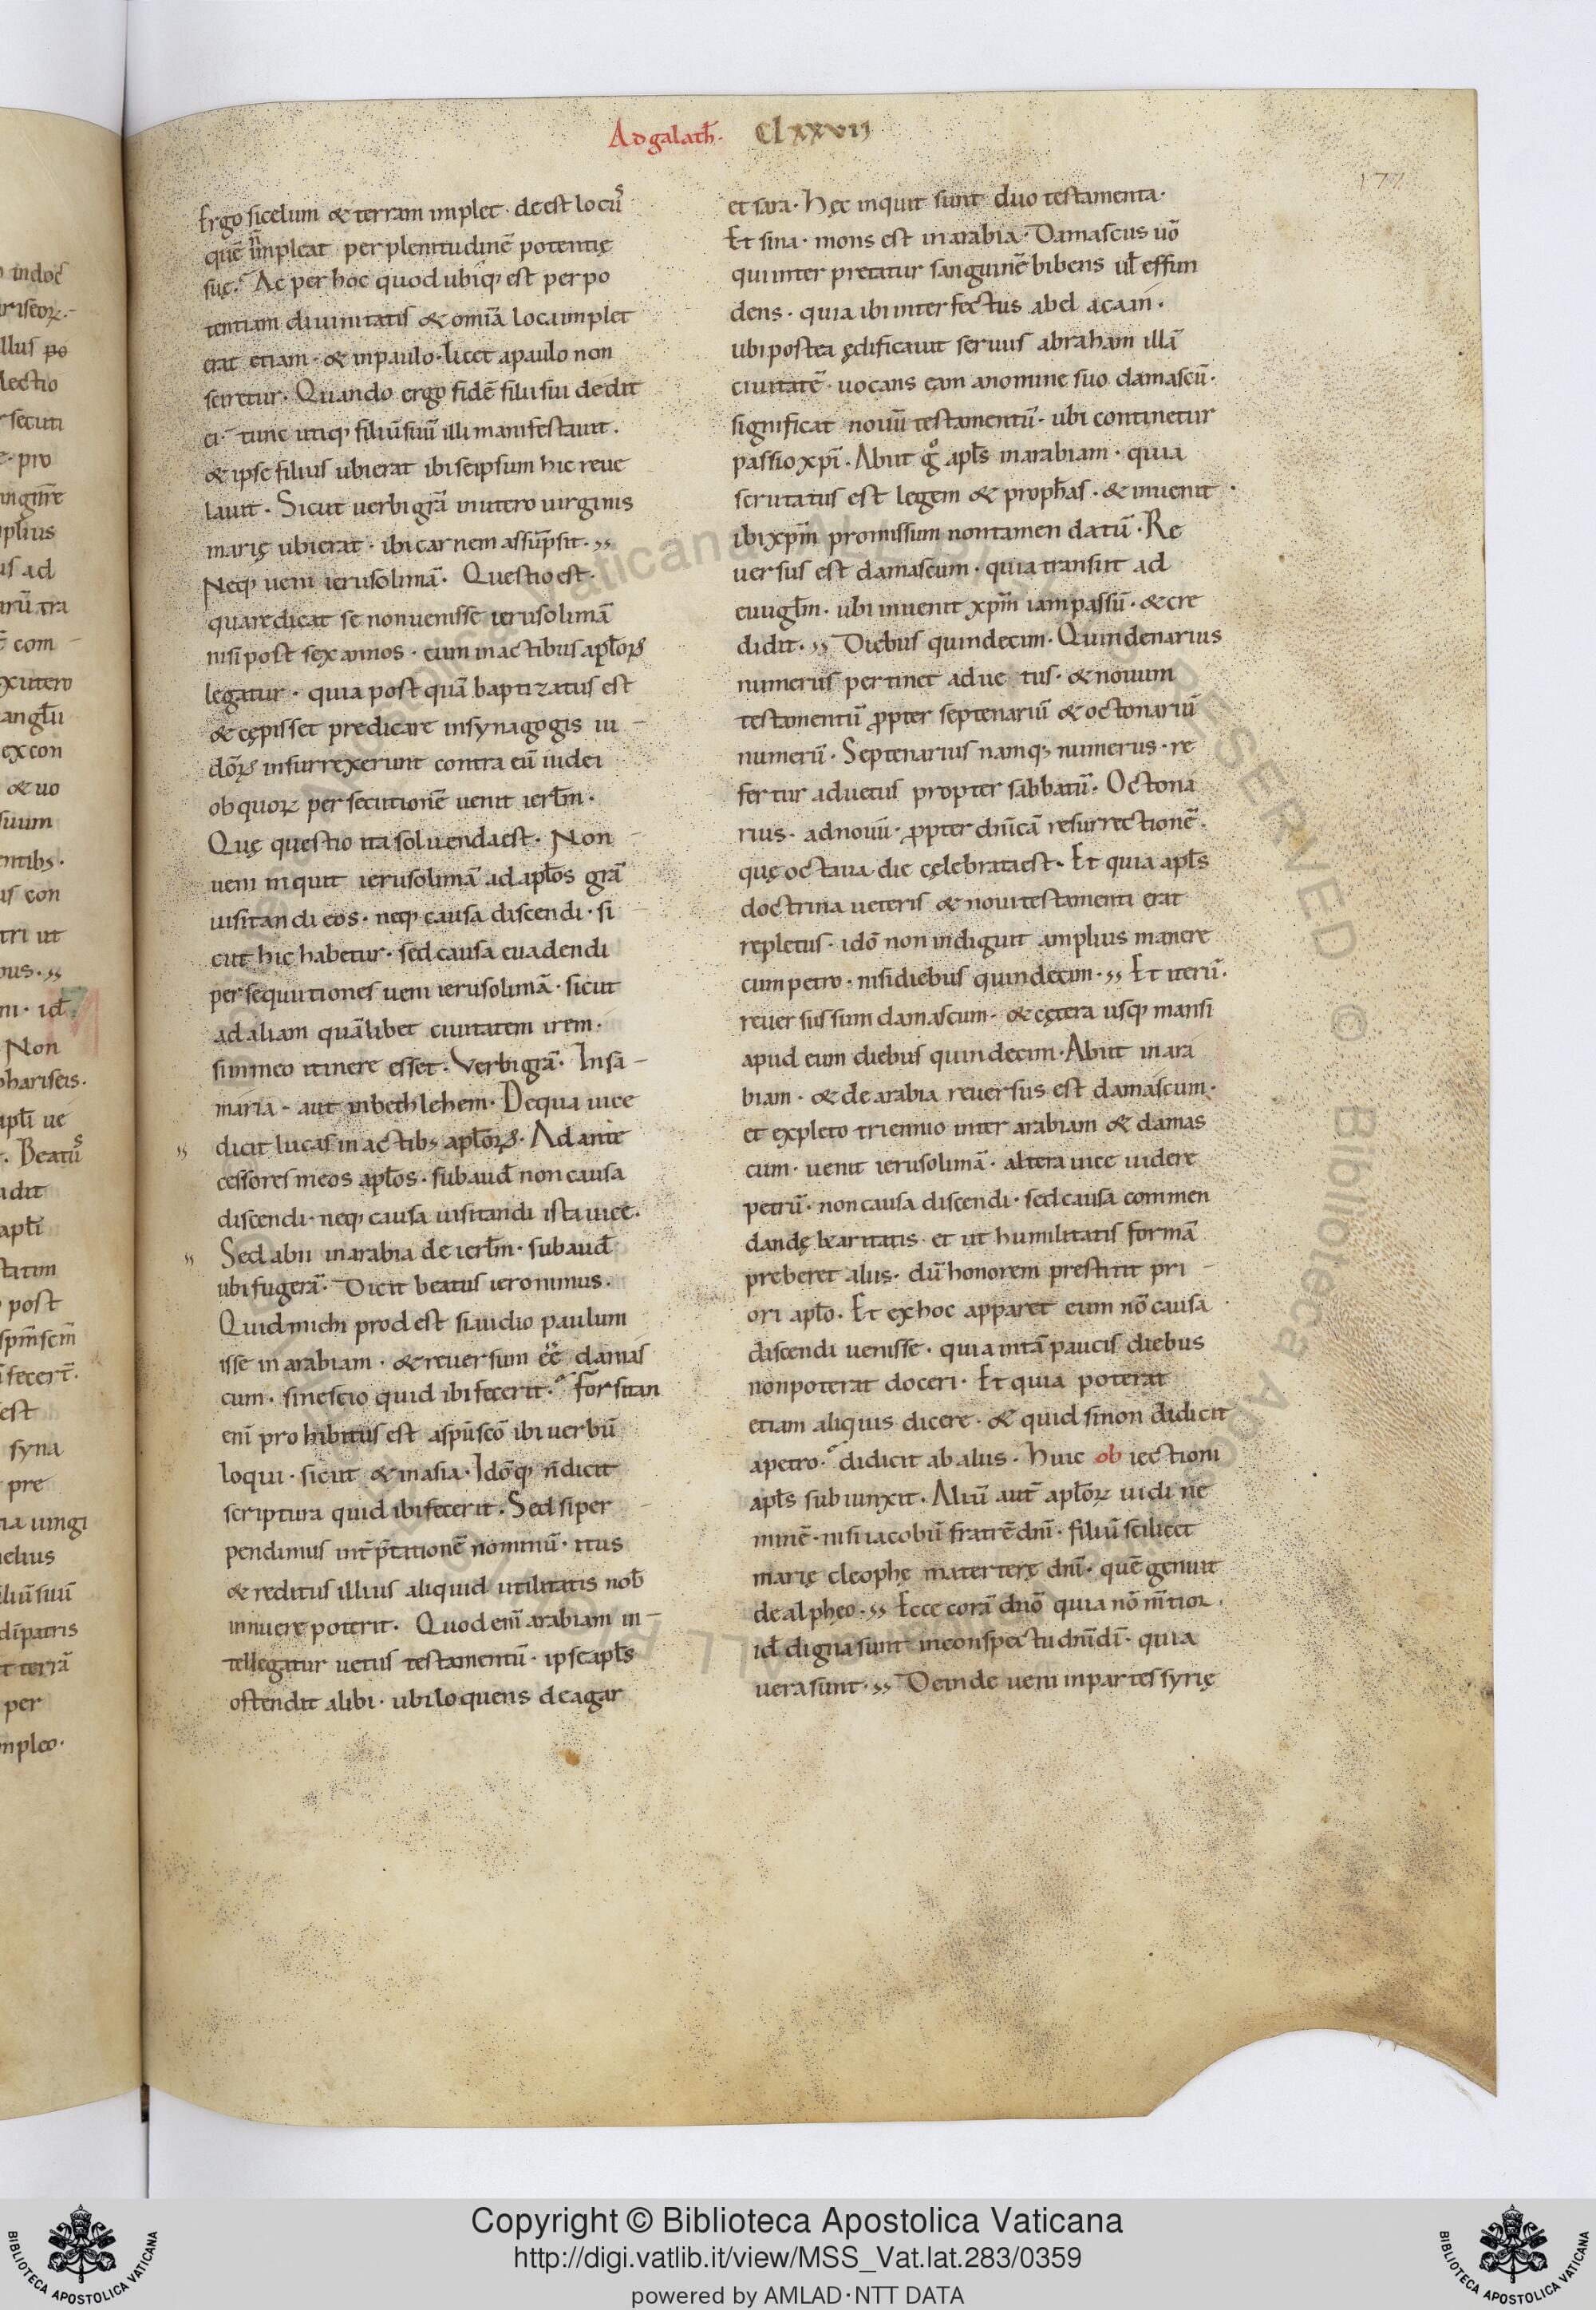 Ad galath̄. Clxxvij
177
Ergo si celum & terram implet · deest locus
quē n̄ impleat per plenitudinē potentię
suę. Ac per hoc quod ubiq; est per po
tentiam diuinitatis & om̄ia loca implet
erat etiam · & in paulo · licet a paulo non
sciretur. Quando ergo fidē filii sui dedit
ei · tunc utiq; filiū suū illi manifestauit.
& ipse filius ubi erat ibi seipsum hic reue
lauit. Sicut uerbi grā in utero uirginis
marię ubi erat · ibi carnem assūpsit. ,,
Neq; ueni ierusolimā. Questio est·
quare dicat se non uenisse ierusolimā
nisi post sex annos · cum in actibus apl̄oꝝ
legatur · quia post quā baptizatus est
& cępisset predicare in synagogis iu-
dōꝝ insurrexerunt contra eū iudei
ob quoꝝ persecutionē uenit ierl̄m.
Quę questio ita soluenda est. Non
ueni inquit ierusolimā ad apl̄os grā
uisitandi eos · neq; causa discendi · si
cut hic habetur · sed causa euadendi
persequutiones ueni ierusolimā · sicut
ad aliam quālibet ciuitatem irem·
si in meo itinere esset. Verbi grā. In sa-
maria - aut in bethlehem. De qua uice
dicit lucas in actib; apl̄oꝝ. Ad ante
cessores meos apl̄os · subaud̄ non causa
discendi · neq; causa uisitandi ista uice.
Sed abii in arabia de ierl̄m · subaud̄
ubi fugerā. Dicit beatus ieronimus.
Quid michi prodest si audio paulum
isse in arabiam · & reuersum eē damas
cum · si nescio quid ibi fecerit. Forsitan
enī prohibitus est a sp̄u sc̄o ibi uerbū
loqui · sicut & in asia. Idōq; n̄ dicit
scriptura quid ibi fecerit. Sed si per
pendimus int̄p̄tationē nominū · itus
& reditus illius aliquid utilitatis nob̄
innuere poterit. Quod enī arabiam in-
tellegatur uetus testamentū · ipse apl̄s
ostendit alibi · ubi loquens de agar
et sara · Hęc inquit sunt duo testamenta·
Et sina · mons est in arabia. Damascus uō
qui interpretatur sanguinē bibens ul̄ effun
dens · quia ibi interfectus abel a cain.
ubi postea ędificauit seruus abraham illā
ciuitatē · uocans eam a nomine suo damascū.
significat nouū testamentū · ubi continetur
passio xp̄i. Abiit gͦ apl̄s in arabiam · quia
scrutatus est legem & proph̄as · & inuenit
ibi xp̄m promissum non tamen datū. Re
uersus est damascum · quia transiit ad
euugl̄m · ubi inuenit xp̄m iam passū · & cre
didit. ,, Diebus quindecim. Quindenarius
numerus pertinet ad ue tus · & nouum
testamentū ꝓpter septenariū & octonariū
numerū. Septenarius namq; numerus · re
fertur ad uetus propter sabbatū. Octona
rius · ad nouū · ꝓpter dn̄icā resurrectionē.
quę octaua die cęlebrata est. Et quia apl̄s
doctrina ueteris & noui testamenti erat
repletus · idō non indiguit amplius manere
cum petro · nisi diebus quindecim. ,, Et iterū.
reuersus sum damascum · & cętera usq; mansi
apud eum diebus quindecim. Abiit in ara
biam · & de arabia reuersus est damascum.
et expleto triennio inter arabiam & damas
cum · uenit ierusolimā · altera uice uidere
petrū · non causa discendi · sed causa commen
dandę karitatis · et ut humilitatis formā
preberet aliis · dū honorem prestitit pri-
ori apl̄o. Et ex hoc apparet eum nō causa
discendi uenisse · quia intā paucis diebus
non poterat doceri. Et quia poterat
etiam aliquis dicere · & quid si non didicit
a petro · didicit ab aliis. Huic ob iectioni
apl̄s subiunxit. Aliū aut̄ apl̄oꝝ uidi ne
minē · nisi iacobū fratrē dn̄i · filiū scilicet
marię cleophę materterę dn̄i · quē genuit
de alpheo. ,, Ecce corā dn̄o quia nō m̄tior.
id̄ digna sunt in conspectu dn̄i dī · quia
uera sunt. ,, Deinde ueni in partes syrię
Copyright © Biblioteca Apostolica Vaticana
http://digi.vatlib.it/view/MSS_Vat.lat.283/0359
powered by AMLAD·NTT DATA
BIBLIOTECA APOSTOLICA VATICANA
BIBLIOTECA APOSTOLICA VATICANA